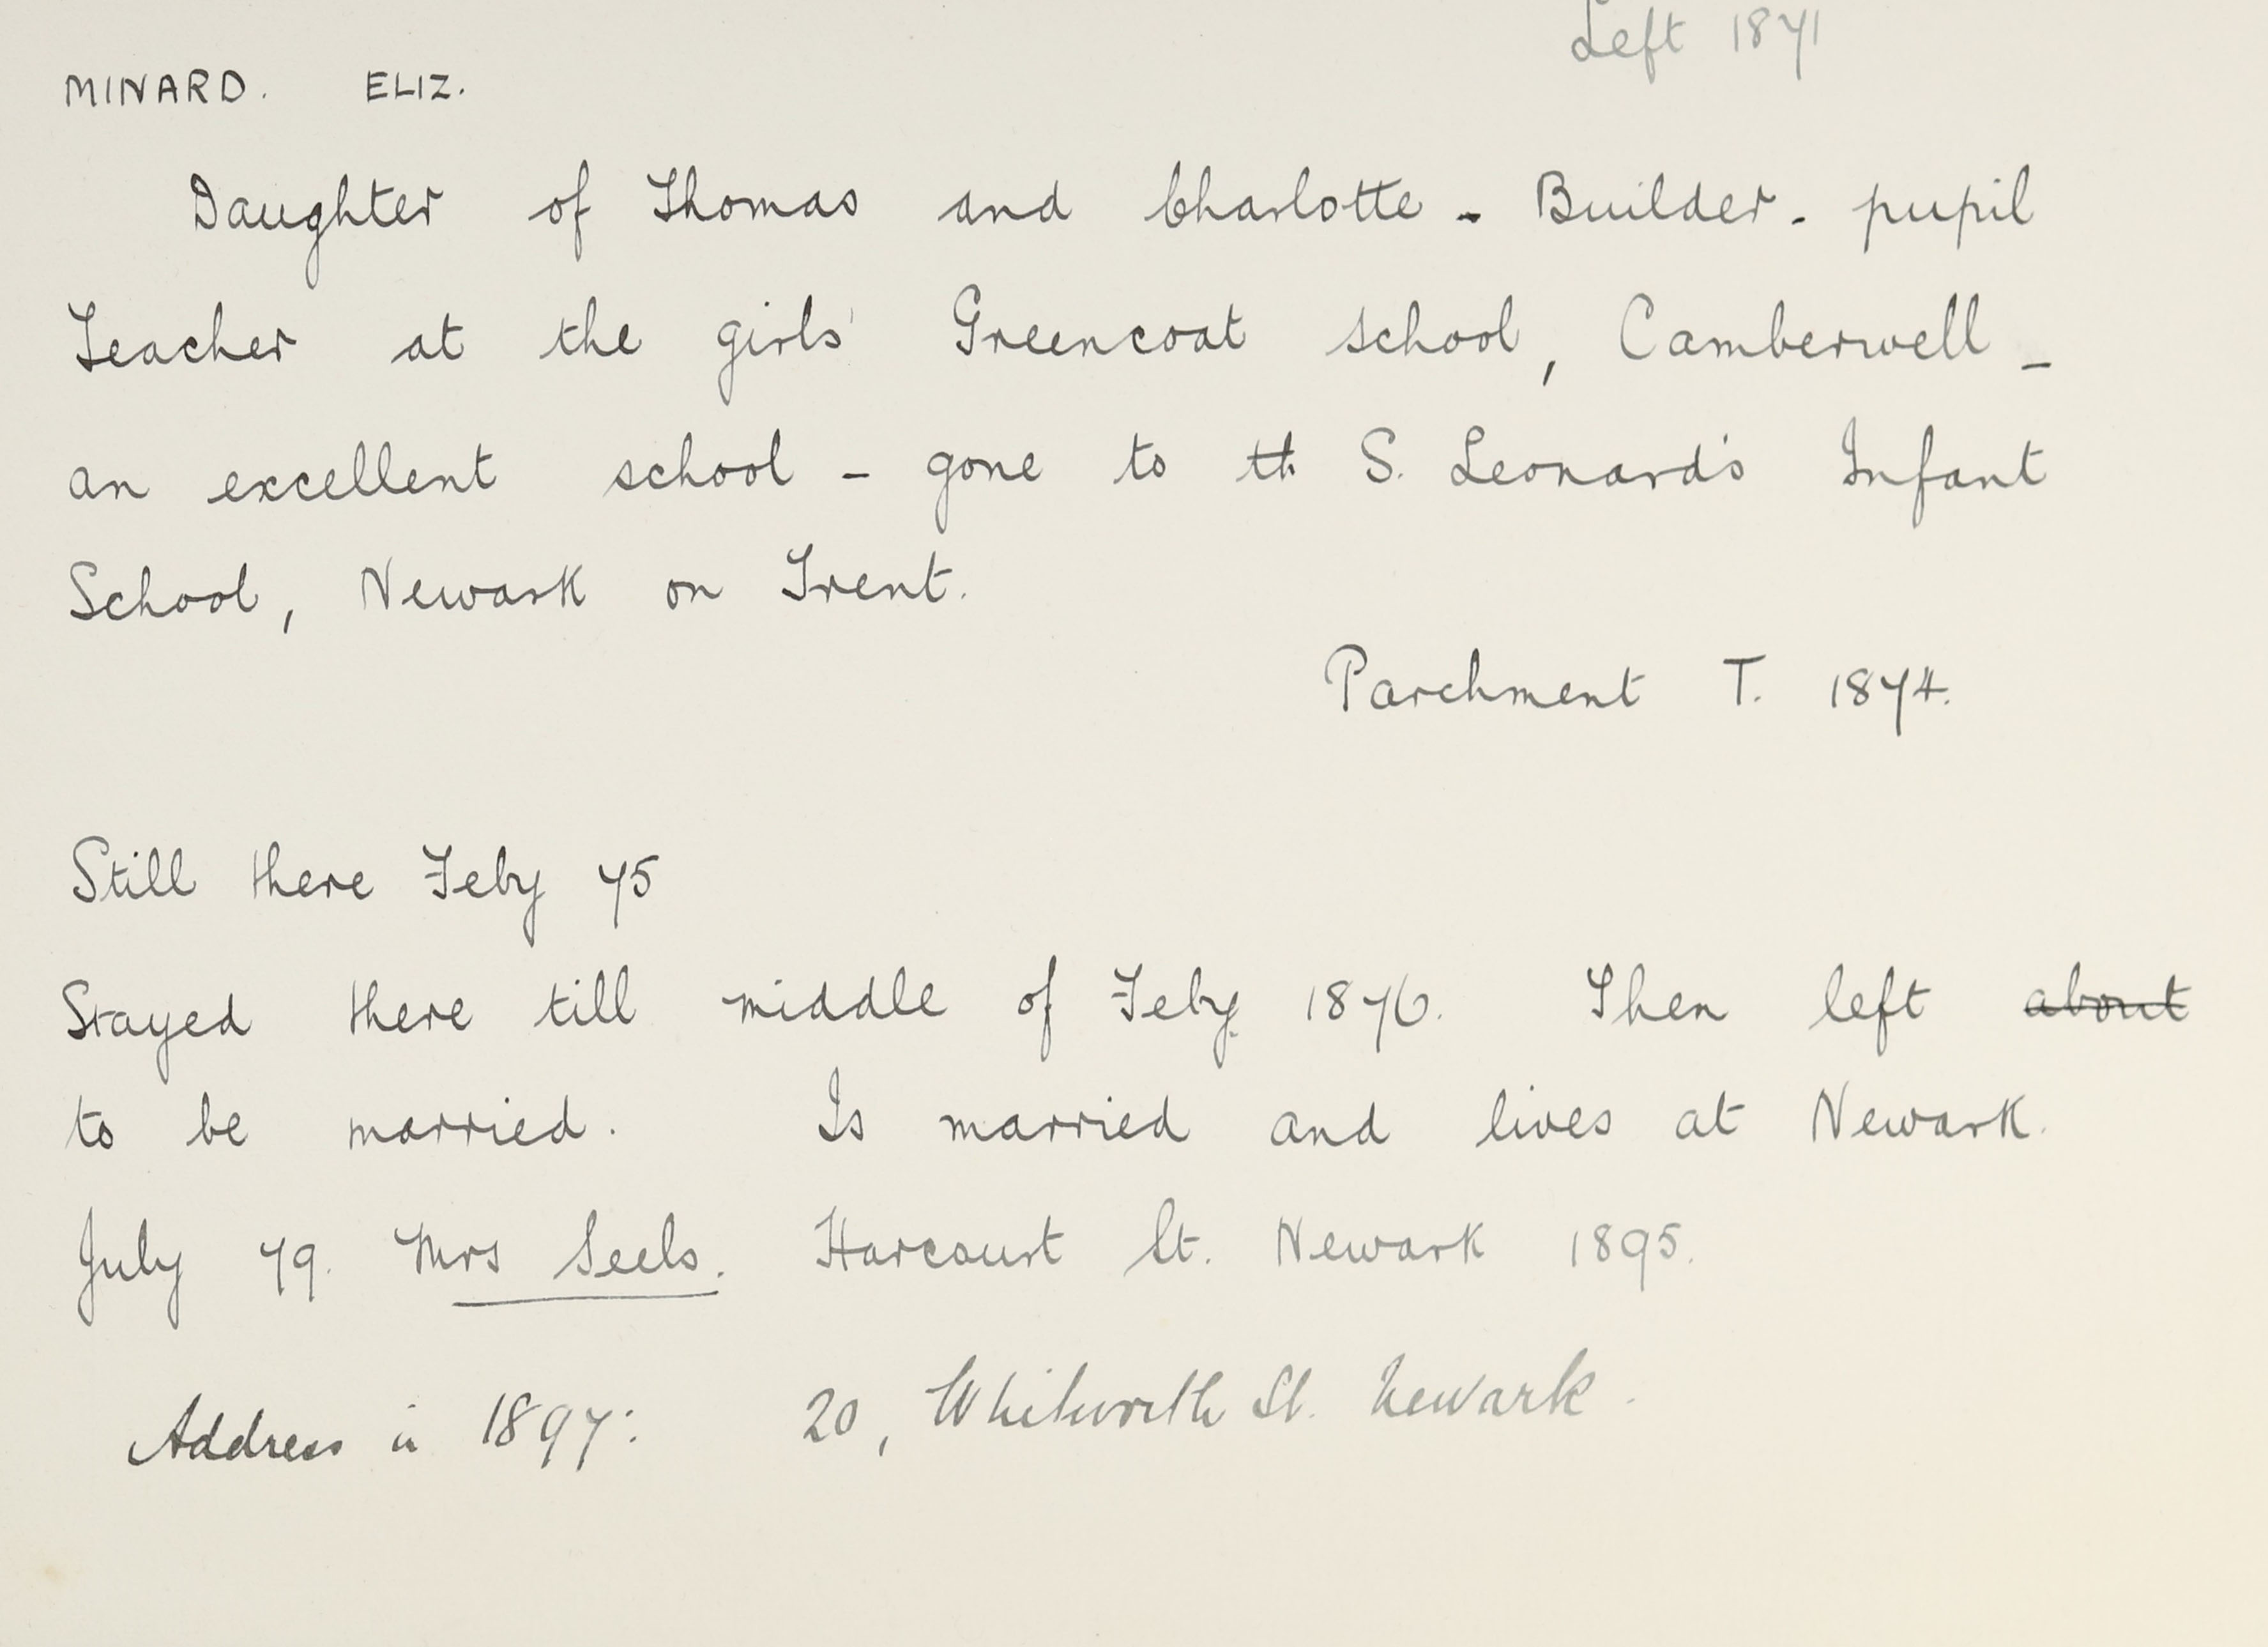 Left 1871
MINARD. ELIZ.
Daughter of Thomas and Charlotte - Builder - pupil
Teacher at the girls' Greencoat school, Camberwell -
an excellent school - gone to th S. Leonard's Infant
School, Newark on Trent.
Parchment T. 1874.
Still there Feby 75
Stayed there till middle of Feby. 1876. Then left about
to be married. Is married and lives at Newark.
July 79. Mrs Seels. Harcourt St. Newark 1895.
Address in 1897: 20, Whitworth St. Newark.